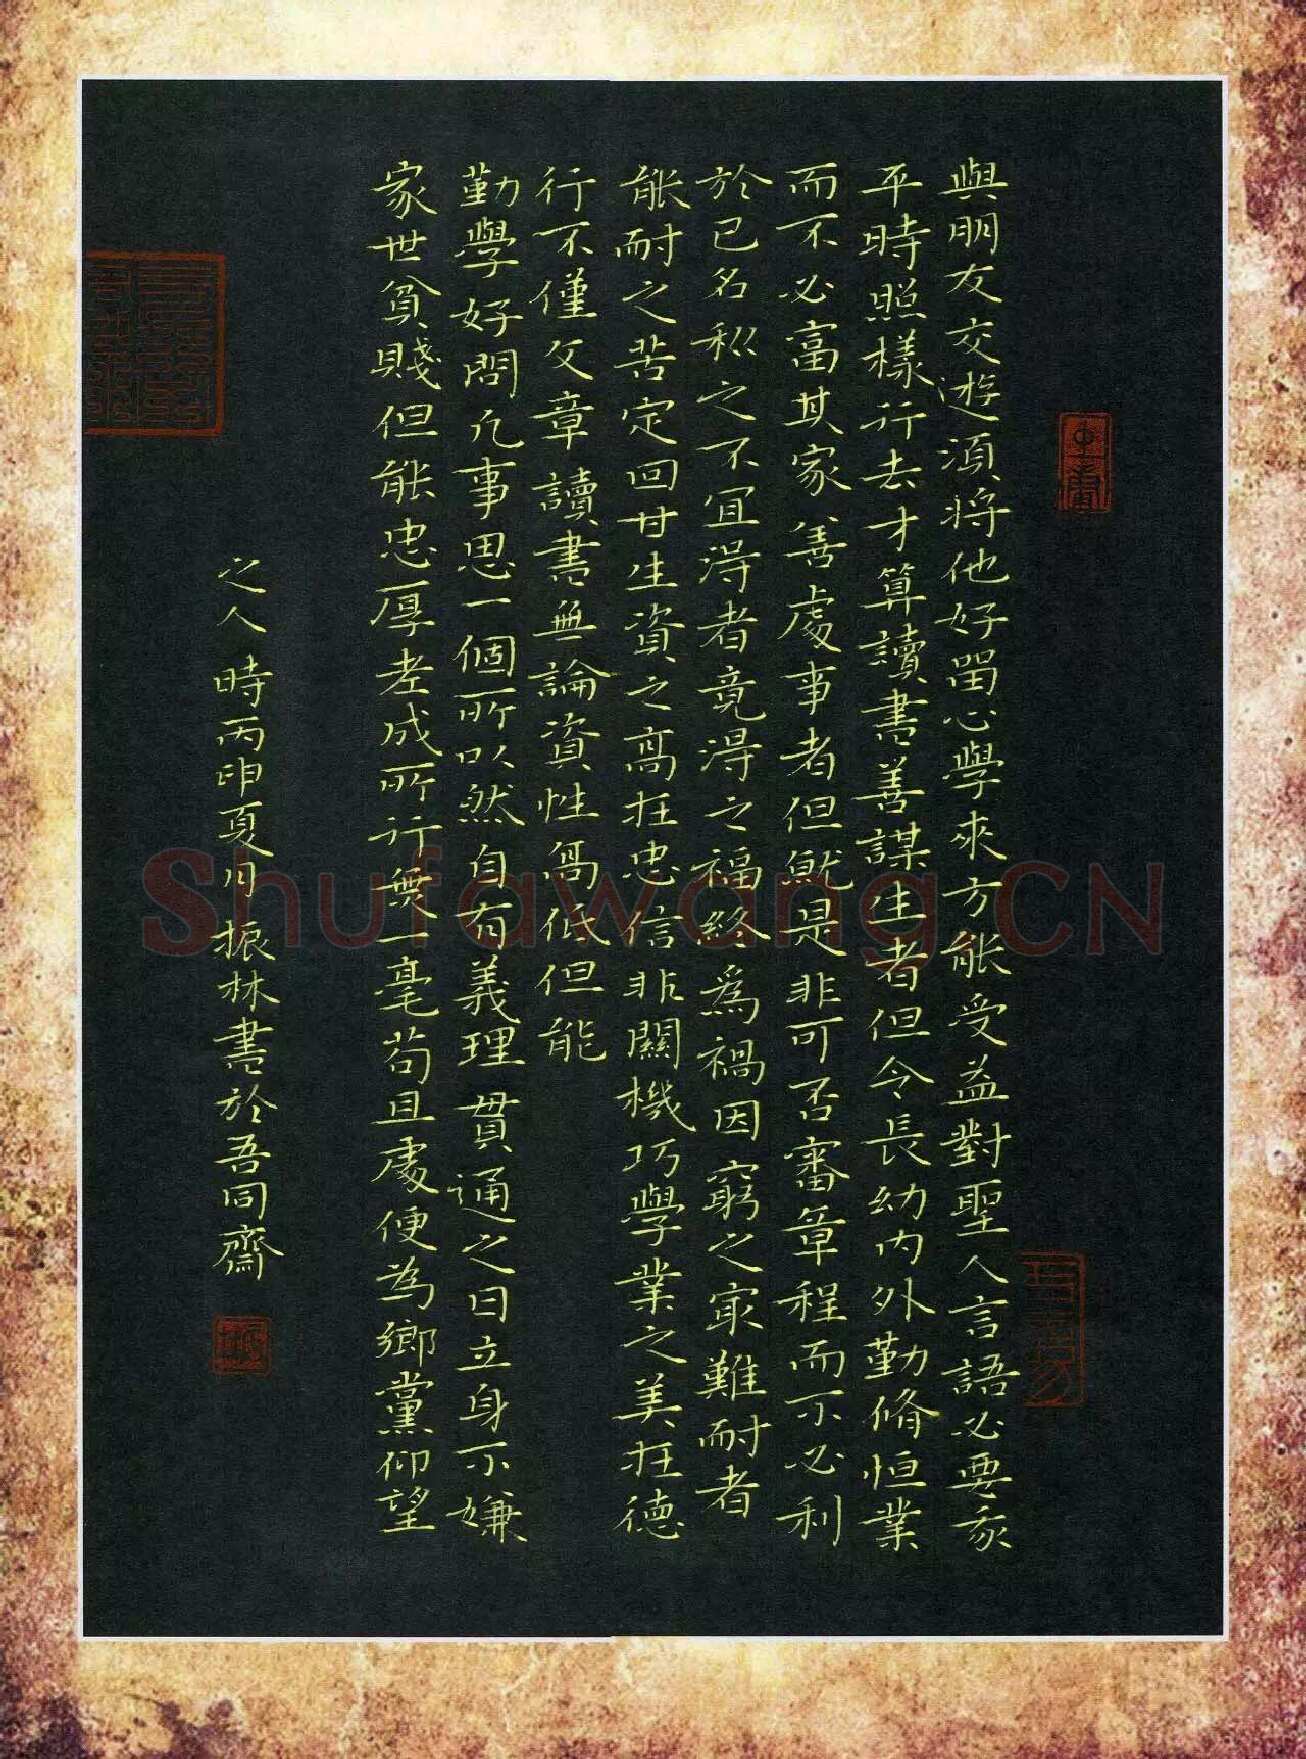 與朋友交遊須將他好畱心學來方能受益對聖人言語必要我
平時照樣行去才算讀書善謀生者但令長幼內外勤脩恒業
而不必富其家善處事者但就是非可否審章程而不必利
於己名利之不宜得者竟得之福終為禍因窮之最難耐者
能耐之苦定回甘生資之高在忠信非關機巧學業之美在德
行不僅文章讀書無論資性高低但能
勤學好問凡事思一個所以然自有義理貫通之日立身不嫌
家世貧賤但能忠厚老成所行無一毫苟且處便為鄉黨仰望
之人時丙申夏月振林書於吾同齋
Shufawang.CN